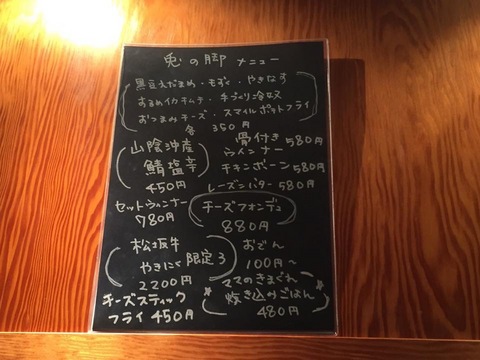 兎の脚 メニュー
黒豆えだまめ・もずく・やきなす
するめイカキムチ・手づくり冷奴
おつまみチーズ・スマイルポテトフライ
各 350円
山陰沖産
鯖塩辛
450円
骨付き
ウインナー 580円
チキンボーン 580円
レーズンバター 580円
セットウィンナー
780円
チーズフォンデュ
880円
松坂牛
やきにく 限定3
2200円
おでん
100円~
チーズスティック
フライ 450円
ママのきまぐれ
炊き込みごはん
480円